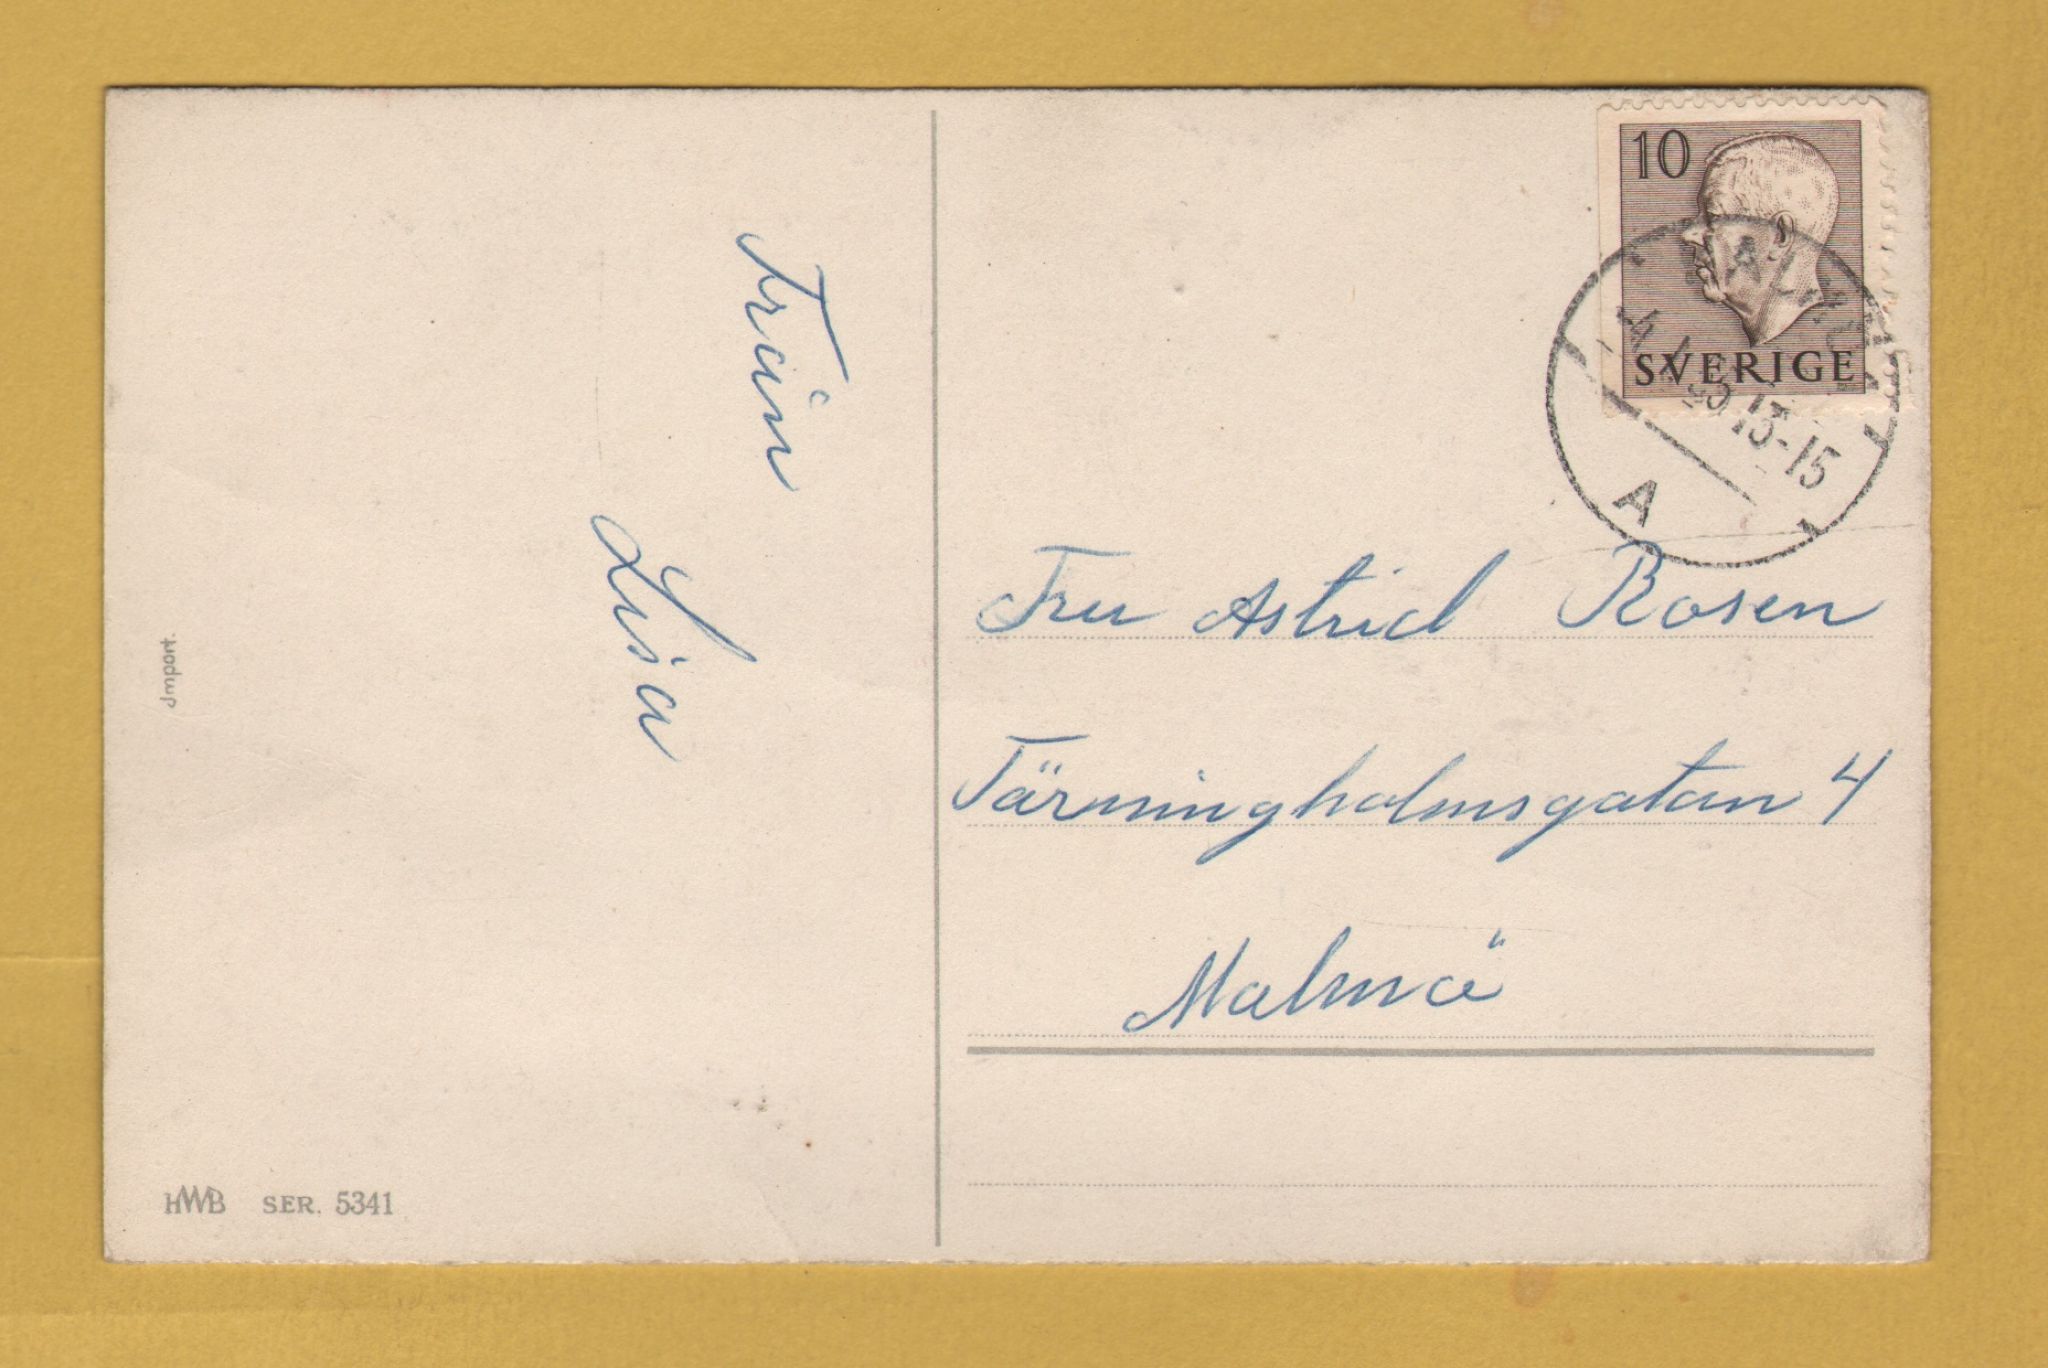 Från
Lisa
Jmport.
HWB SER. 5341
10
SVERIGE
13-15
A
Fru Astrid Rosen
Tärningholmsgatan 4
Malmö